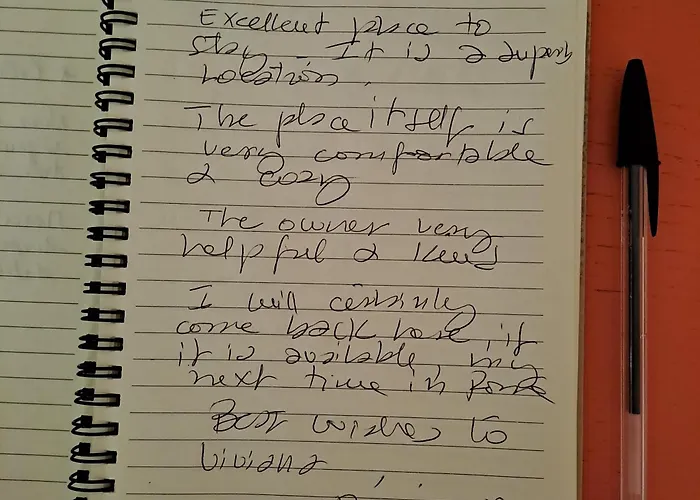 Excellent place to
stay. It is a superb
Location.
The place itself is
very comfortable
& Cozy
The owner very
helpful & kind
I will certainly
come back here, if
it is available, my
next time in
Best wishes to
Viviana